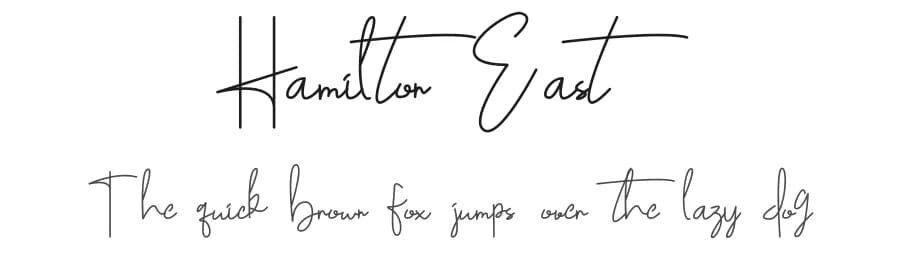 Hamilton East
The quick brown fox jumps over the lazy dog